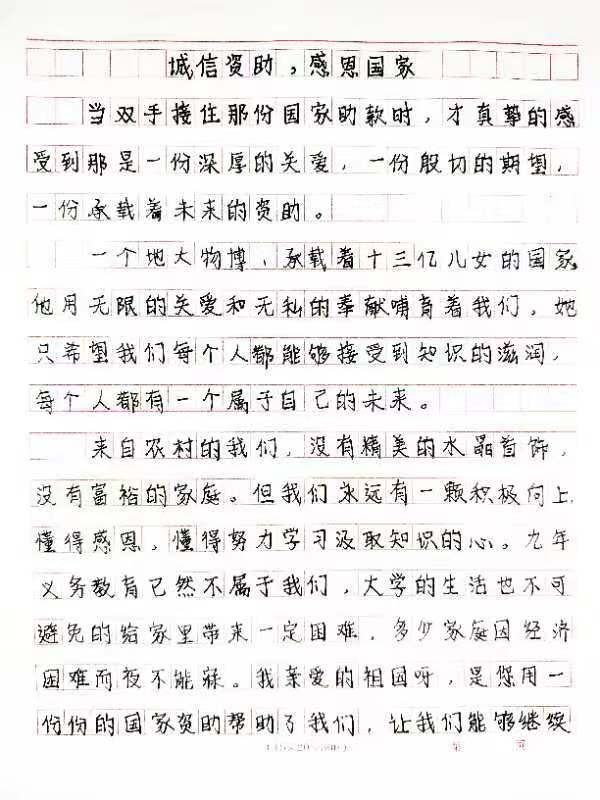 诚信资助，感恩国家
当双手接住那份国家助款时，才真挚的感
受到那是一份深厚的关爱，一份殷切的期望，
一份承载着未来的资助。
一个地大物博、承载着十三亿儿女的国家
他用无限的关爱和无私的奉献哺育着我们，她
只希望我们每个人都能够接受到知识的滋润，
每个人都有一个属于自己的未来。
来自农村的我们，没有精美的水晶首饰，
没有富裕的家庭。但我们永远有一颗积极向上
懂得感恩，懂得努力学习汲取知识的心。九年
义务教育已然不属于我们，大学的生活也不可
避免的给家里带来一定困难，多少家庭因经济
困难而夜不能寐。我亲爱的祖国呀，是您用一
份份的国家资助帮助了我们，让我们能够继续
第 页